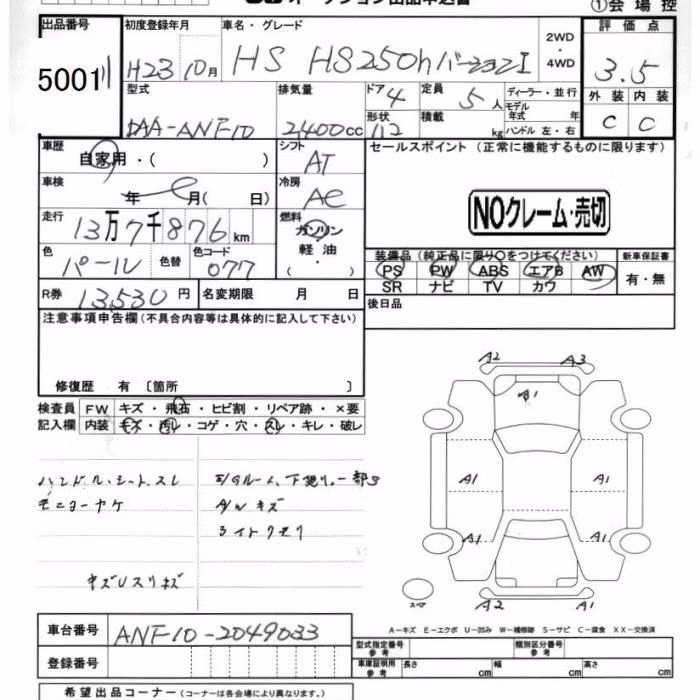 オークション出品申込書
①会場控
出品番号 初度登録年月 車名・グレード 2WD・4WD 評価点
5001 H23 10月 HS HS250h バージョンI 3.5
型式 排気量 ドア 4 定員 5人 ディーラー・並行 外装 内装
DAA-ANF10 2400cc 形状 112 積載 kg モデル年式 年 ハンドル 左・右 C C
車歴 自家用・( ) シフト AT セールスポイント(正常に機能するものに限ります)
車検 年 月( 日) 冷房 AC
NOクレーム・売切
走行 13万7千876km 燃料 ガソリン 軽・油 ( )
色 パール 色替 色コード 077
装備品(純正品に限り○をつけてください) 新車保証書
PS PW ABS エアB AW 有・無
SR ナビ TV カワ
R券 13530円 名変期限 月 日 後日品
注意事項申告欄(不具合内容等は具体的に記入して下さい)
修復歴 有 〔箇所 〕
検査員 FW キズ・飛石・ヒビ割・リペア跡・×要
記入欄 内装 キズ・汚レ・コゲ・穴・スレ・キレ・破レ
ハンドル.シート.スレ
A/Wキズ
ライトクモリ
キズUスリキズ
A2 A3
B1
A1 A1
A1 A1
A2 A1
スペア
A−キズ E−エクボ U−凹み W−補修跡 S−サビ C−腐食 XX−交換済
車台番号 ANF10-2049033
登録番号
型式指定番号 参考 類別区分番号 参考
車庫証明用 参考 長さ cm 幅 cm 高さ cm
希望出品コーナー(コーナーは各会場により異なります。)